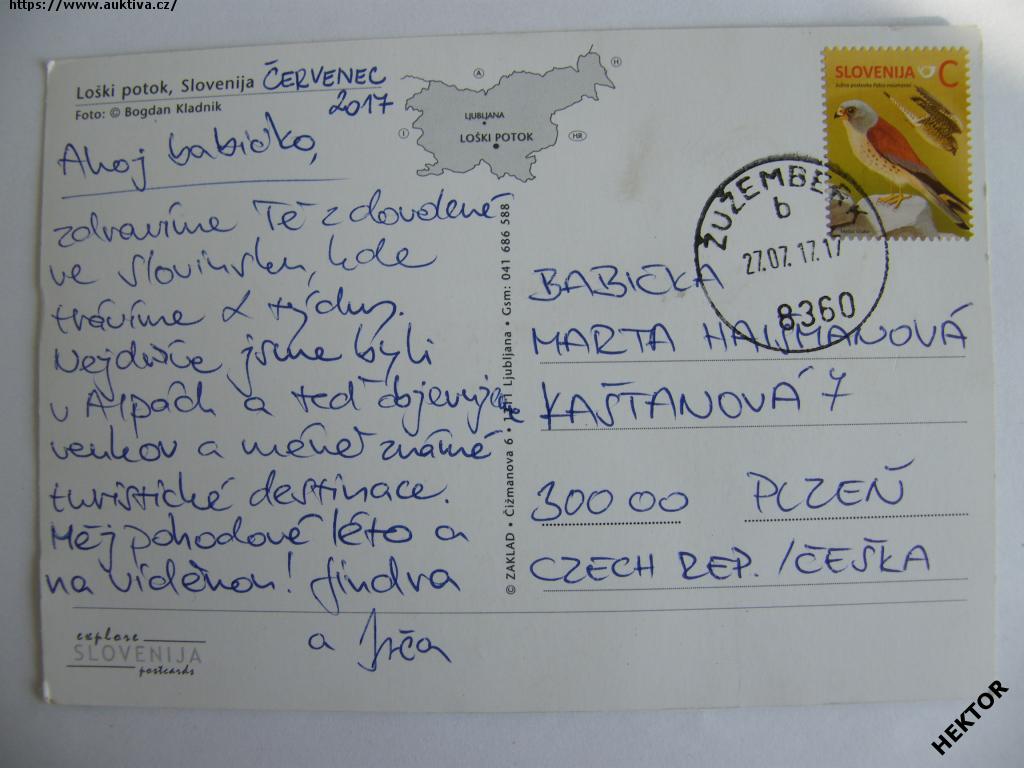 https://www.auktiva.cz/
Loški potok, Slovenija ČERVENEC
2017
Foto: © Bogdan Kladnik
Ahoj babičko,
zdravíme Tě z dovolené
ve Slovinsku, kde
trávíme 2 týdny.
Nejdříve jsme byli
v Alpách a teď objevujeme
venkov a méně známé
turistické destinace.
Měj pohodové léto a
na viděnou! Jindra
a Jirča
explore
SLOVENIJA
postcards
A
H
I
HR
LJUBLJANA
LOŠKI POTOK
© ZAKLAD • Čižmanova 6 • Ljubljana • Gsm: 041 686 588
SLOVENIJA C
ŽUŽEMBERK
b
27.07.17.17
8360
BABIČKA
MARTA HAUSMANOVÁ
KAŠTANOVÁ 7
300 00 PLZEŇ
CZECH REP. / ČEŠKA
HEKTOR